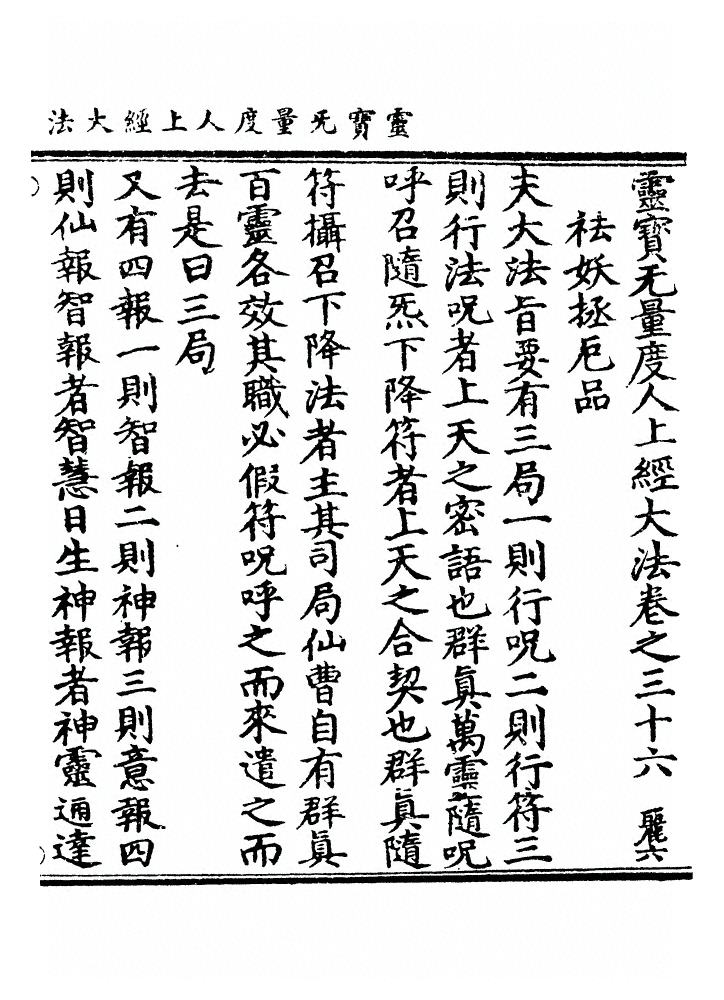 靈寶旡量度人上經大法
靈寶无量度人上經大法卷之三十六 麗六
祛妖拯厄品
夫大法旨要有三局一則行咒二則行符三
則行法咒者上天之密語也群真萬靈隨咒
呼召隨炁下降符者上天之合契也群真隨
符攝召下降法者主其司局仙曹自有群真
百靈各效其職必假符咒呼之而來遣之而
去是曰三局
又有四報一則智報二則神報三則意報四
則仙報智報者智慧日生神報者神靈通達